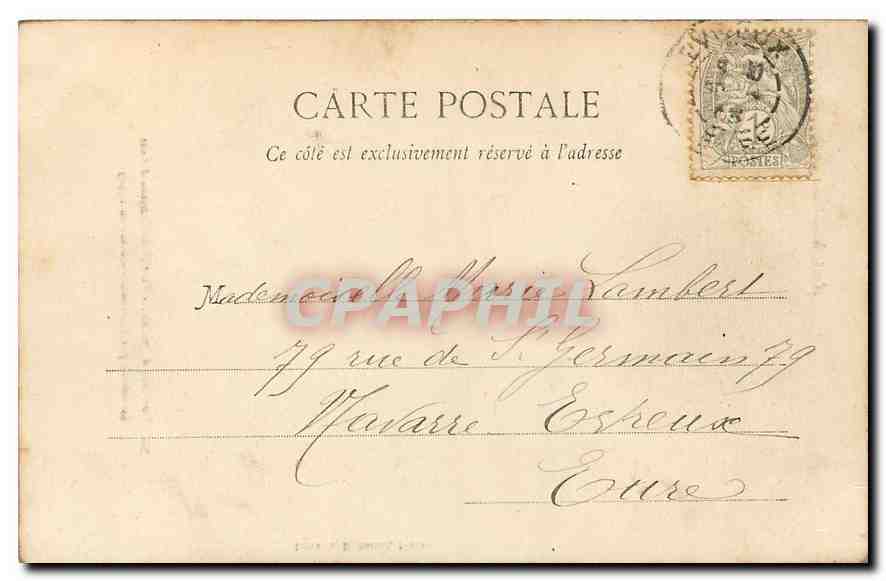 CARTE POSTALE
Ce côté est exclusivement réservé à l'adresse
EVREUX
POSTES
Mademoiselle Marie Lambert
CPAPHIL
79 rue de St Germain 79
Navarre Evreux
Eure